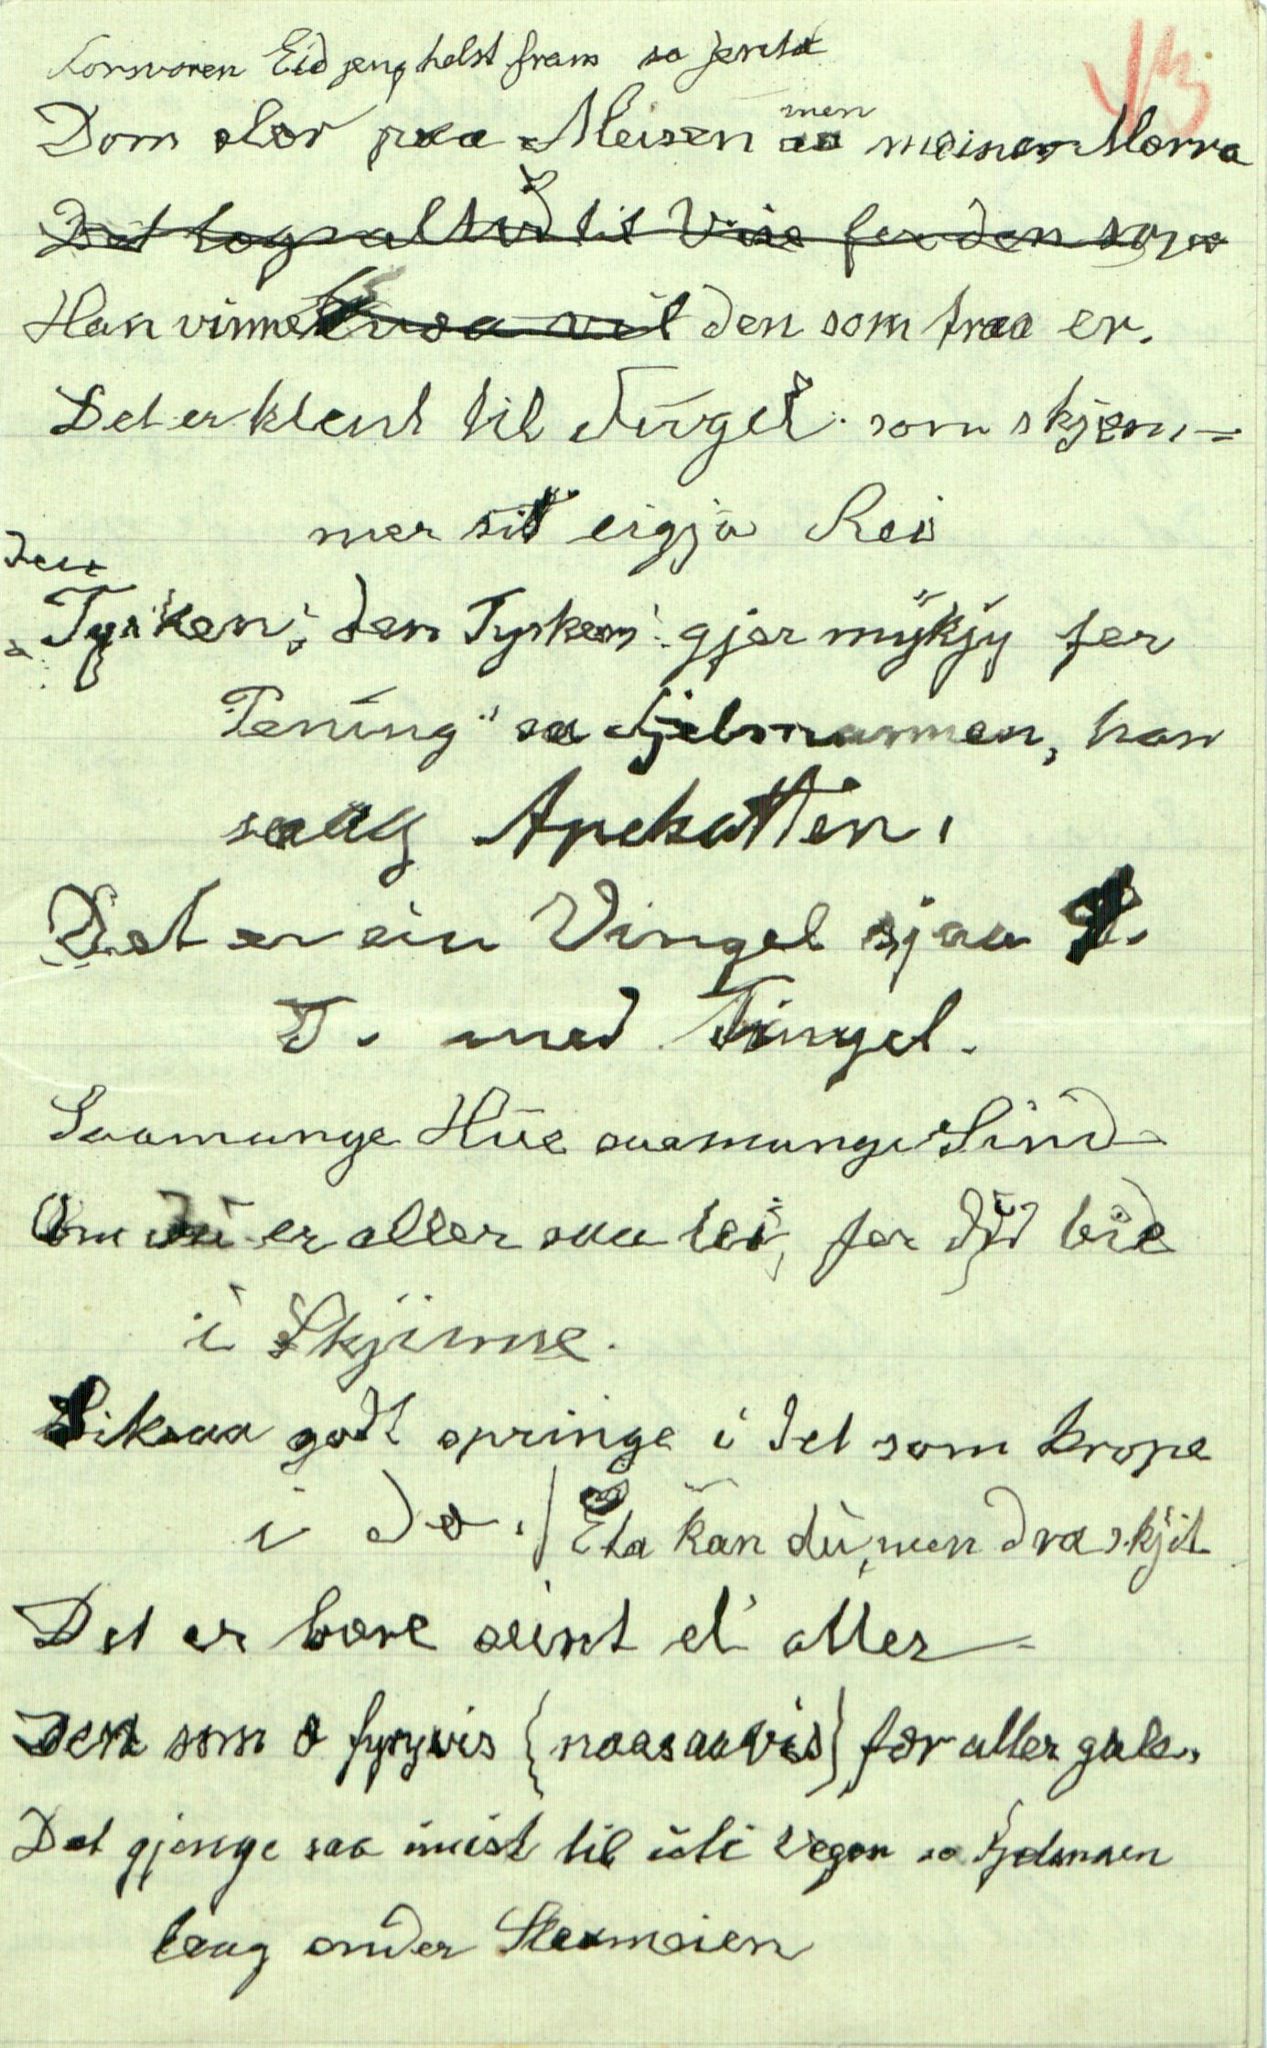 Forsvoren Eid jeng helst fram sa jenta
Dom slær paa Meisen men meiner Morra
Det log alt til Vise fer den
Han vinne den som traa er.
Det er klent til Fugel som skjem-
mer sit eigja Rei
den
Tysken, den Tysken gjer mykjy fer
Pening" sa Fjelmannen, han
saag Apekatten.
Det er ein Vingel sjaa
T. med Tingel.
Saamange Hue saamange Sind
Om du er aller saa lei, fer du bie
i Skjinne.
Liksaa godt springe i det som krope
i de. / Eta kan du, men dra skjit
Det er bære seint el aller
Den som æ fyryvis {naasaavis} fær aller gale.
Det gjenge saa imist til uti Vegen sa Fjelmannen
laag onder Sleameien